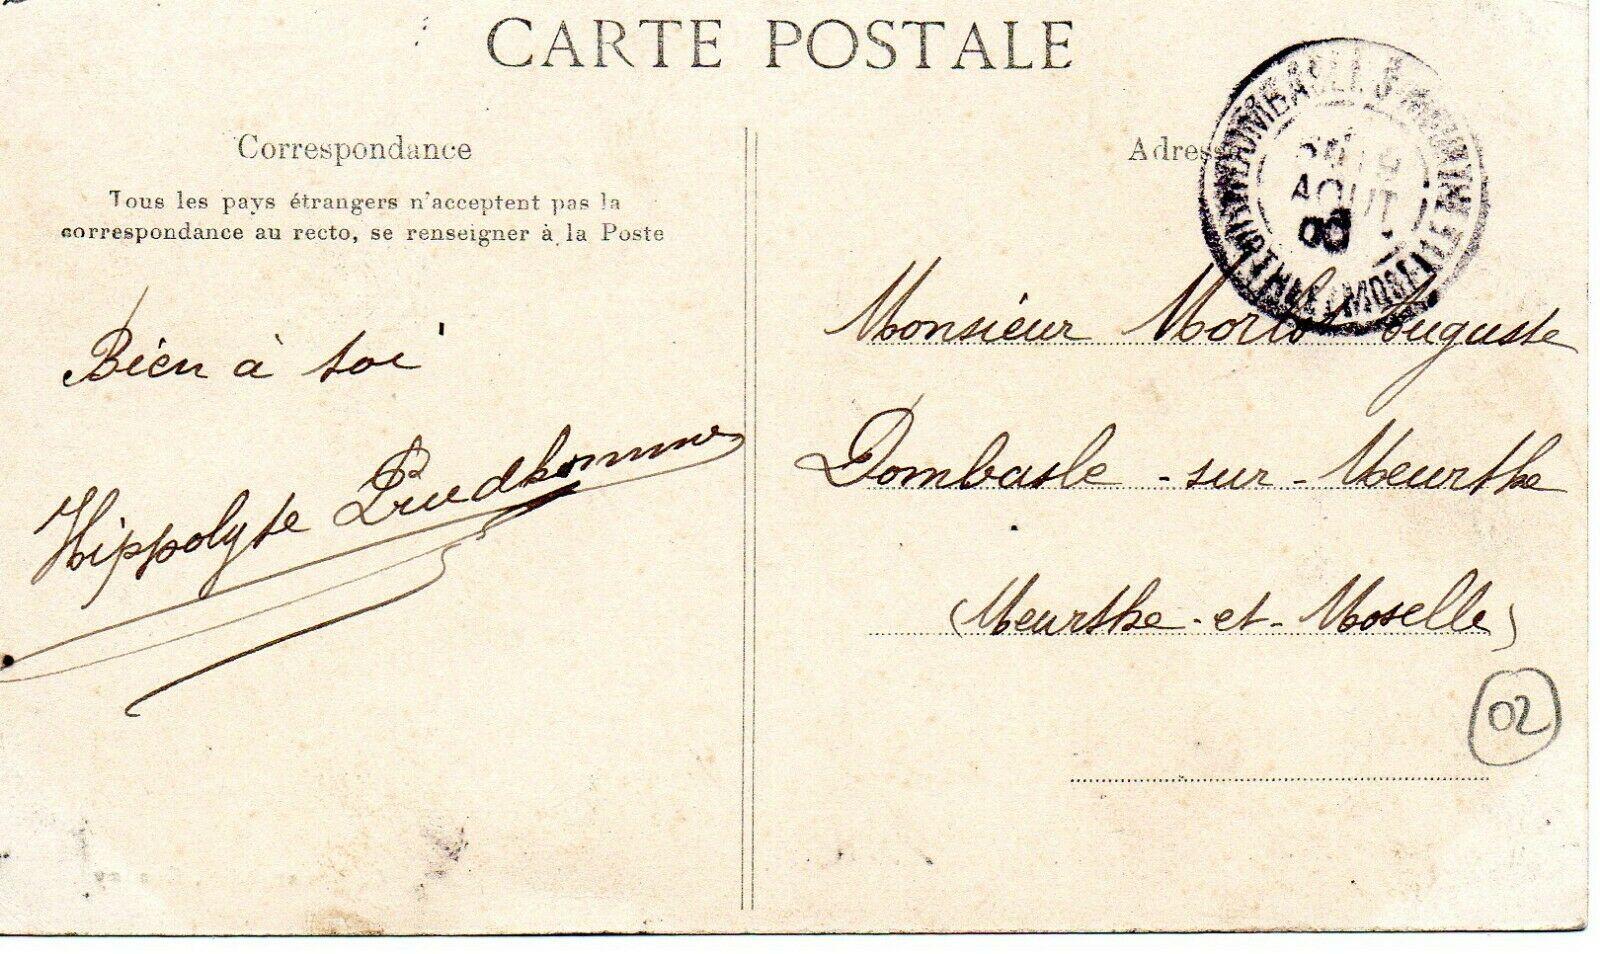 CARTE POSTALE
Correspondance
Tous les pays étrangers n'acceptent pas la
correspondance au recto, se renseigner à la Poste
Bien à toi
Hippolyte Prudhomme
Adresse
AOUT
MEURTHE ET MOSELLE
Monsieur Morlot Auguste
Dombasle - sur - Meurthe
(Meurthe - et - Moselle)
02